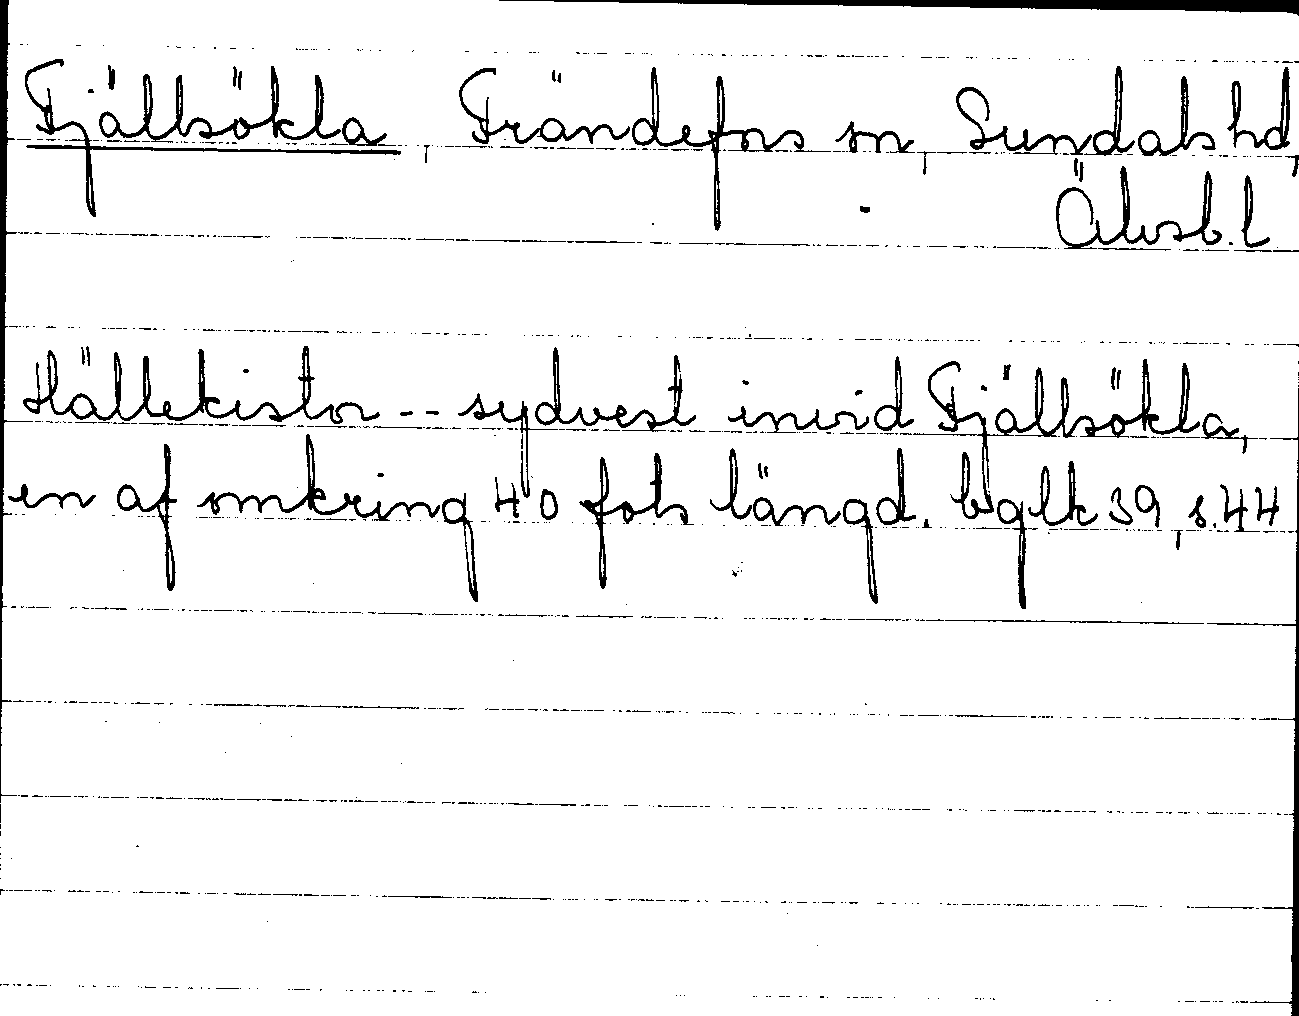 Fjällsökla, Frändefors sn, Sundals hd,
Älvsb. l
Hällekistor -- sydvest invid Fjällsökla,
en af omkring 40 fots längd. bglk 39, s. 44